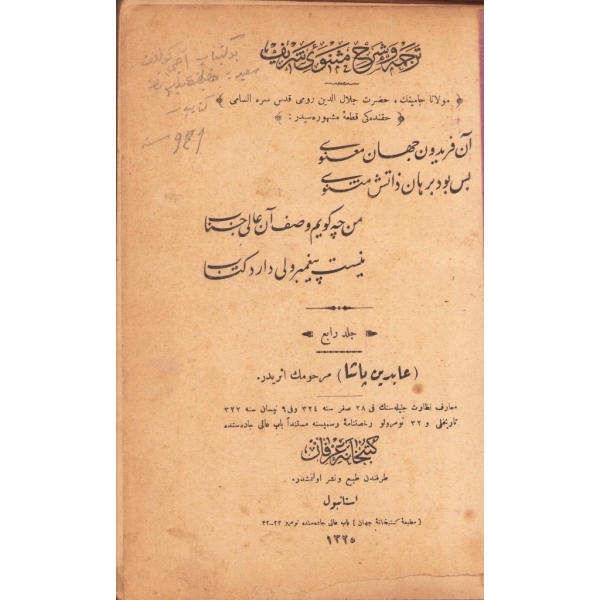 ترجمه و شرح مثنوئ شريف
﴿ مولانا جامينك ، حضرت جلال الدين رومى قدس سره السامى ﴾
﴿ حقنده‌كى قطعۀ مشهوره‌سيدر : ﴾
آن فريدون جهان معنوى
بس بود برهان ذاتش مثنوى
من چه كويم وصف آن عالى جناب
نيست پيغمبر ولى دارد كتاب
جلد رابع
( عابدين پاشا ) مرحومك اثريدر.
معارف نظارت جليله‌سنك فى ٢٨ صفر سنه ٣٢٤ وفى ٩ نيسان سنه ٣٢٢
تاريخلى و ٣٢ نومرولو رخصتنامۀ رسميسنه مستنداً باب عالى جاده‌سنده
كتبخانۀ عرفان
طرفندن طبع و نشر اولنمشدر.
استانبول
[ مطبعۀ كتبخانۀ جهان ] باب عالى جاده‌سنده نومرو ٢٤-٣٢
١٣٢٥